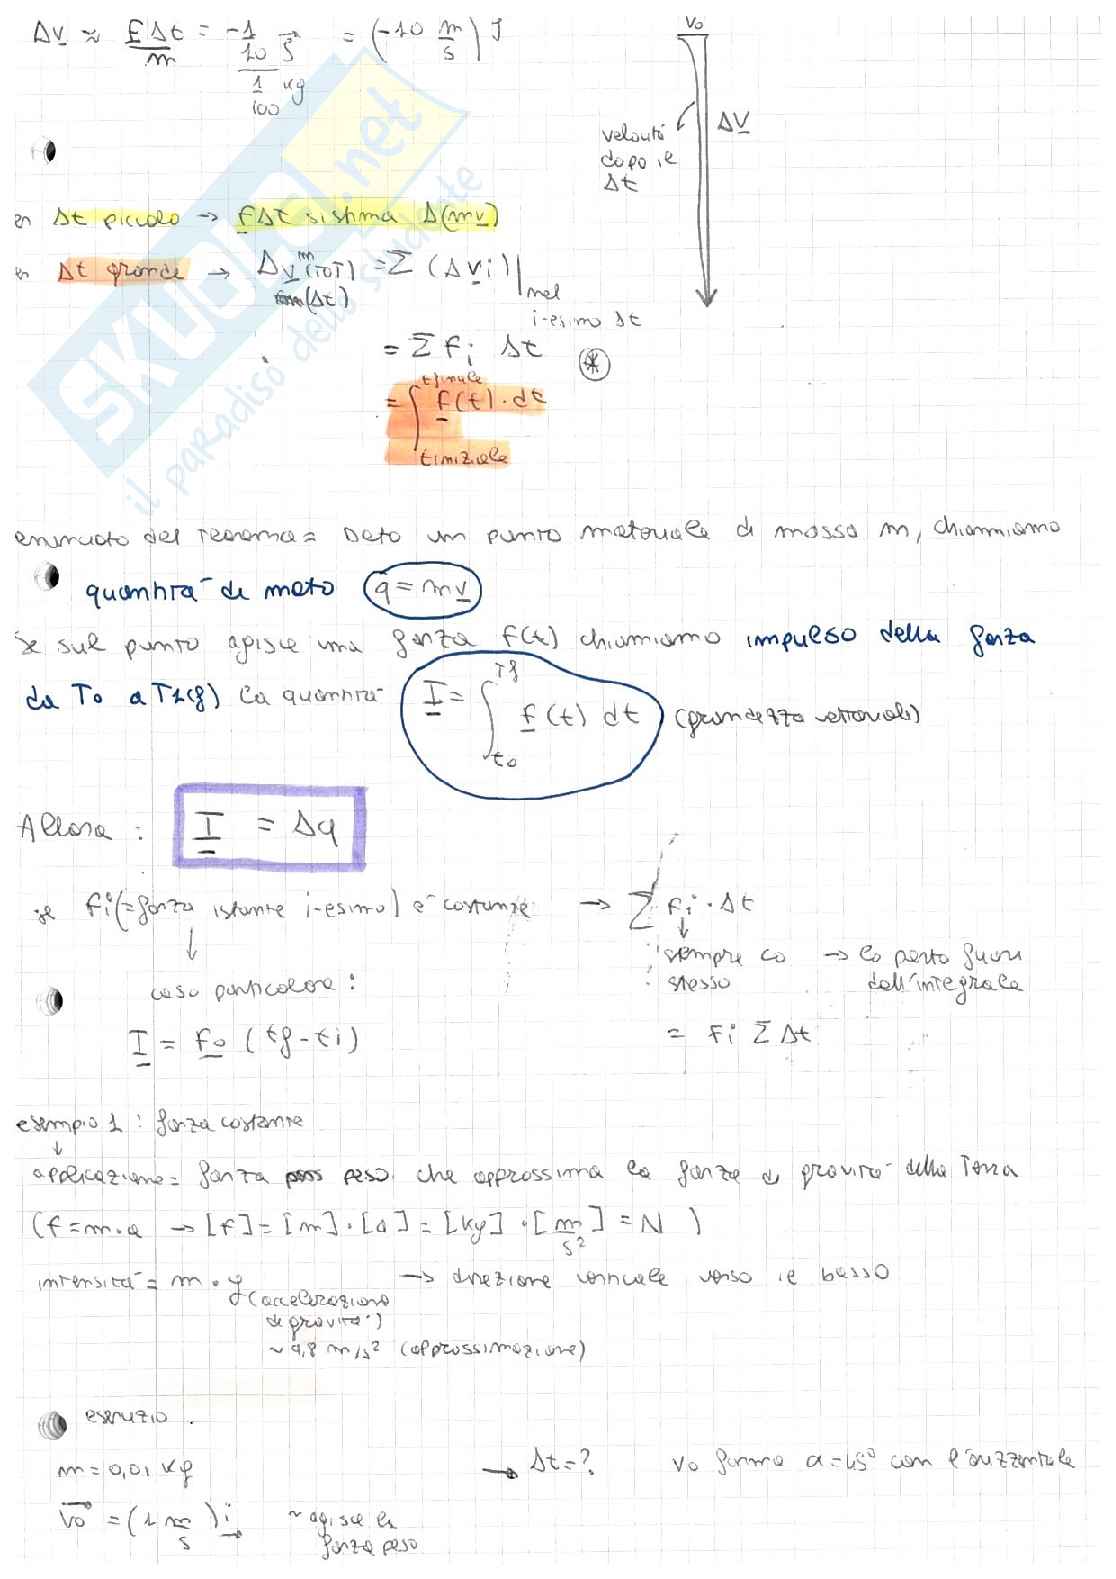 Δv ≈ FΔt/m = -1/10 J / 1/100 kg = (-10 m/s) J
v₀
Δv
velocità
dopo il
Δt
in Δt piccolo → FΔt sistima Δ(mv)
in Δt grande → Δv m(TOT) = Σ (Δvi)|nel i-esimo Δt
(Δt)
= Σ Fi Δt *
= ∫ tfinale tiniziale f(t)·dt
enunciato del teorema = Dato un punto materiale di massa m, chiamiamo
quantità di moto q = mv
se sul punto agisce una forza f(t) chiamiamo impulso della forza
da T₀ a T1(f) la quantità I = ∫ Tf t₀ f(t) dt (grandezza vettoriale)
Allora : I = Δq
se Fi (=forza istante i-esimo) è costante → Σ Fi · Δt
sempre lo stesso → lo porto fuori dall'integrale
caso particolare :
I = f₀ (tf - ti)
= Fi Σ Δt
esempio 1 : forza costante
applicazione = forza peso che approssima la forza di gravità della Terra
(f = m·a → [f] = [m]·[a] = [kg]·[m/s²] = N )
intensità = m · g → direzione verticale verso il basso
(accelerazione
di gravità)
~ 9,8 m/s² (approssimazione)
esercizio .
m = 0,01 kg → Δt = ? v₀ forma α = 45° con l'orizzontale
v₀ = (1 m/s) i ~ agisce la
forza peso
SKUOLA.net
il paradiso dello studente